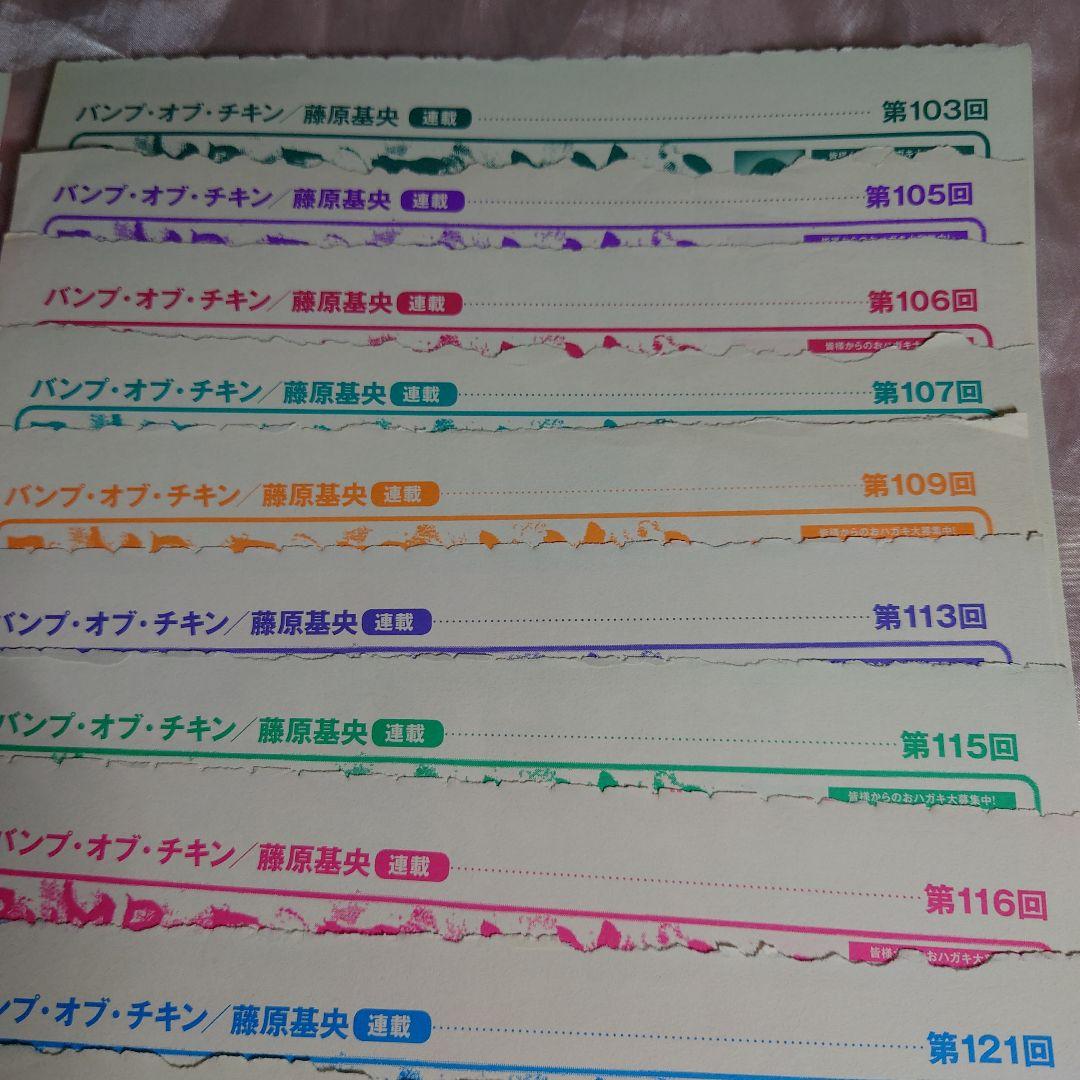 バンプ・オブ・チキン／藤原基央 連載 第103回
バンプ・オブ・チキン／藤原基央 連載 第105回
バンプ・オブ・チキン／藤原基央 連載 第106回
皆様からのおハガキ
バンプ・オブ・チキン／藤原基央 連載 第107回
バンプ・オブ・チキン／藤原基央 連載 第109回
皆様からのおハガキ大募集中!
バンプ・オブ・チキン／藤原基央 連載 第113回
バンプ・オブ・チキン／藤原基央 連載 第115回
皆様からのおハガキ大募集中!
バンプ・オブ・チキン／藤原基央 連載 第116回
皆様 おハガキ大
ンプ・オブ・チキン／藤原基央 連載 第121回